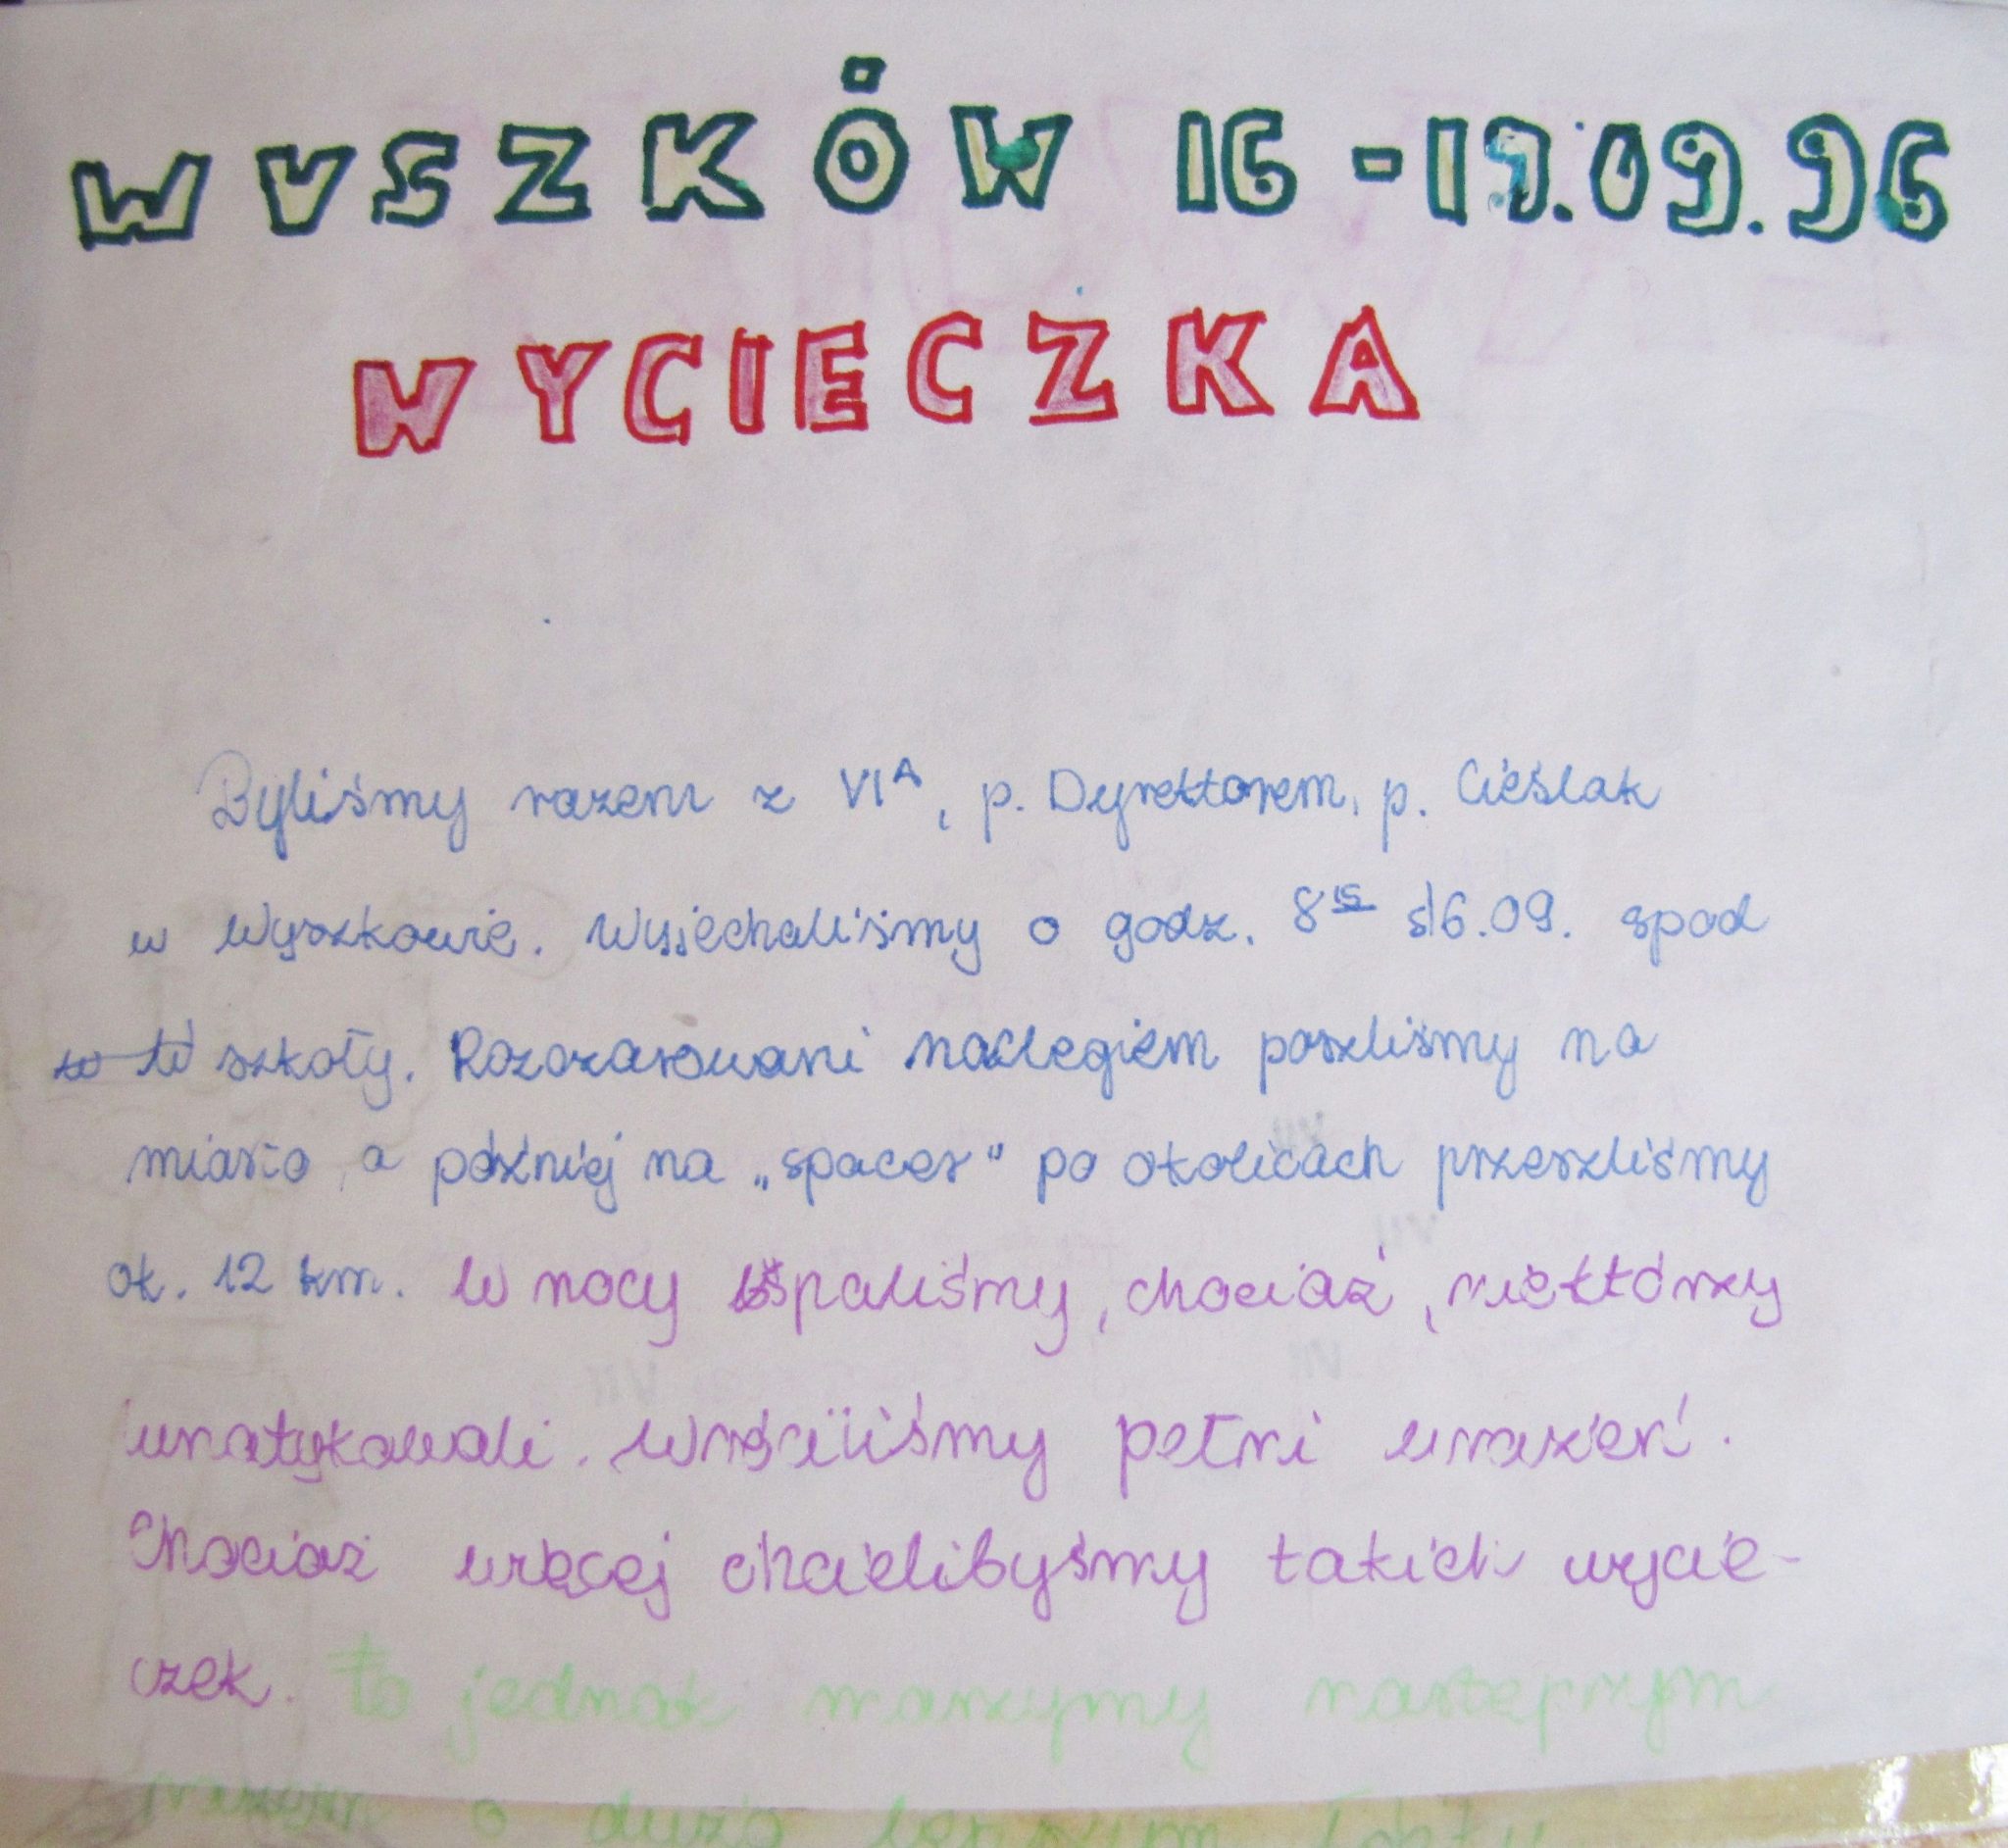 WYSZKÓW 16-17.09.96
WYCIECZKA
Byliśmy razem z VI A, p. Dyrektorem, p. Cieślak
w Wyszkowie. Wyjechaliśmy o godz. 8 15 16.09. spod
szkoły. Rozczarowani noclegiem poszliśmy na
miasto, a później na „spacer" po okolicach przeszliśmy
ok. 12 km. W nocy spaliśmy, chociaż, niektórzy
urzykowali. Wróciliśmy pełni wrażeń.
Chociaż więcej chcielibyśmy takich wycie-
czek. to jednak marzymy następnym
razem o dużo lepszym